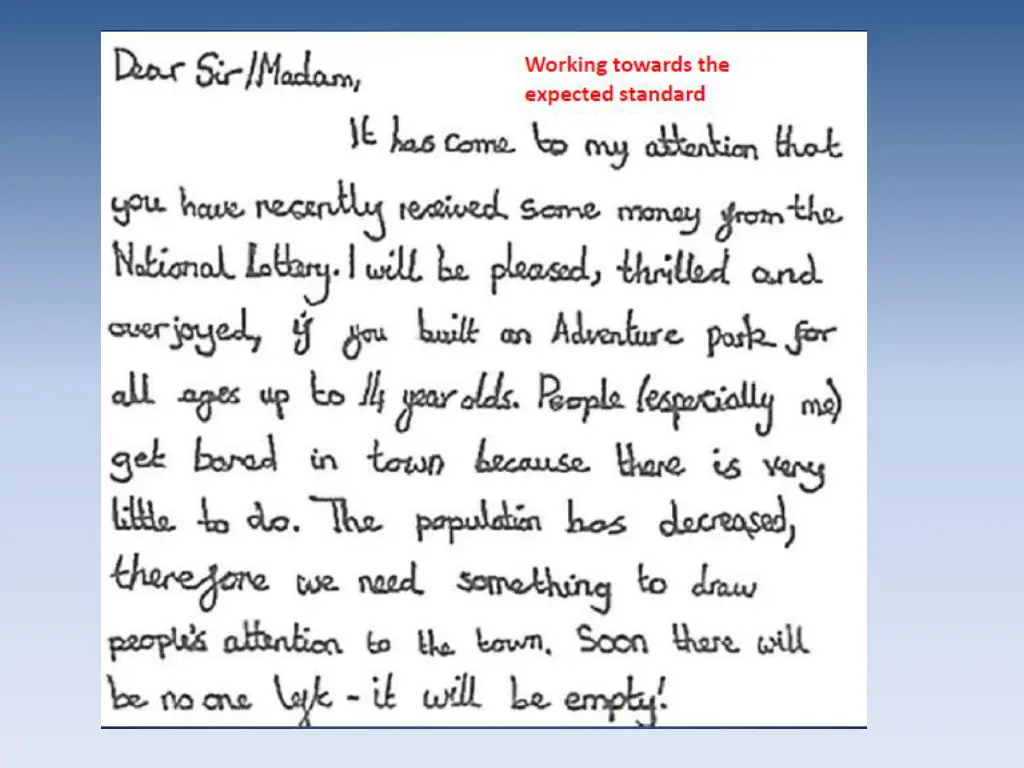 Dear Sir/Madam,
Working towards the
expected standard
It has come to my attention that
you have recently reseived some money from the
National Lottery. I will be pleased, thrilled and
overjoyed, if you built an Adventure park for
all ages up to 14 year olds. People (especially me)
get bored in town because there is very
little to do. The population has decreased,
therefore we need something to draw
people's attention to the town. Soon there will
be no one left - it will be empty!